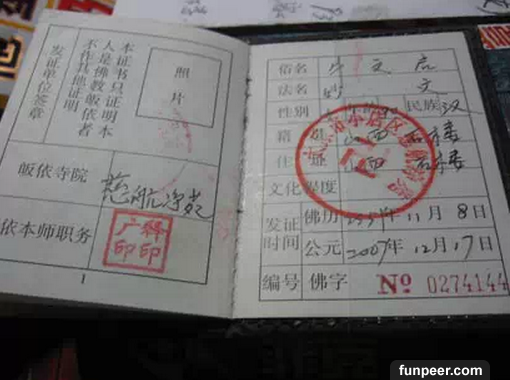 本证书只证明本
人是佛教皈依者
不作其他证明
发证单位签章
照片
皈依寺院 慈航净苑
依本师职务
释印
广印
1
俗名 文
法名 文
性别 民族 汉
籍 山西 石楼
住 山西 石楼
文化程度
发证时间 佛历 2551年11月8日
公元 2007年12月17日
编号 佛字 № 0274144
funpeer.com